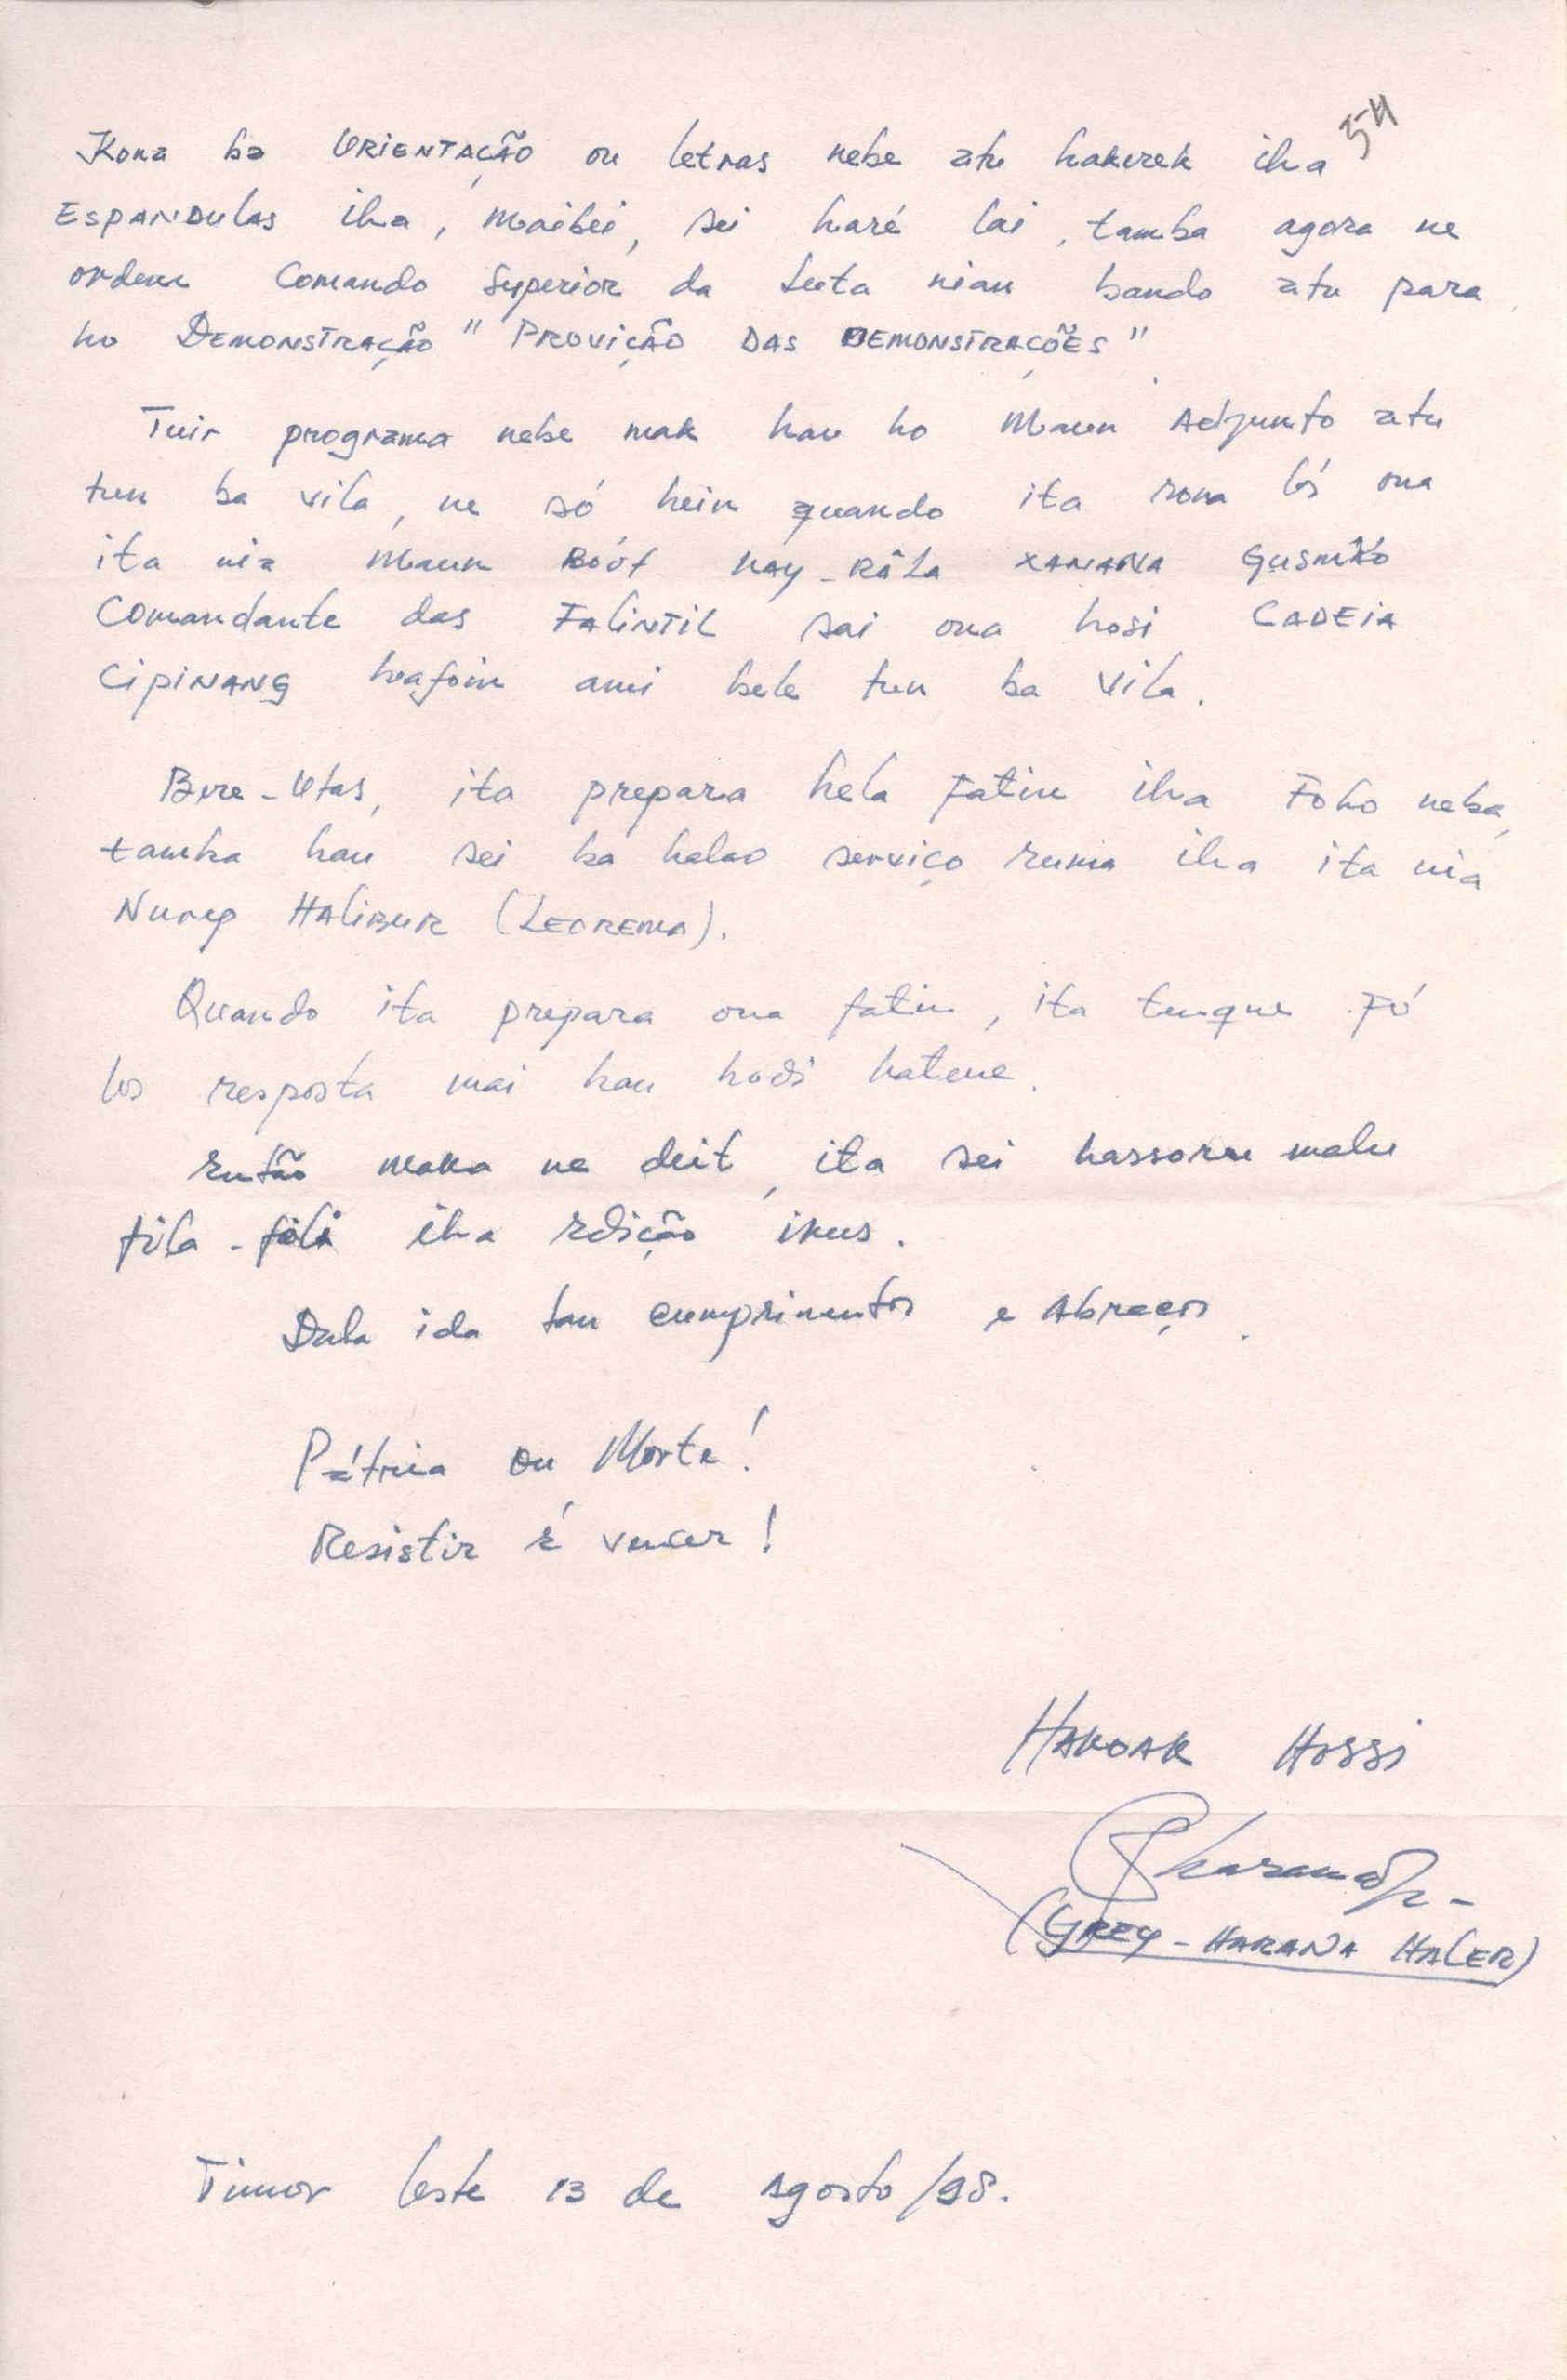 54
Kona ba ORIENTAÇÃO ou letras nebe atu hakerek iha
ESPANDULAS iha, maibei, sei haré lai, tamba agora ne
ordem Comando Superior da Luta nian bando atu para
ho DEMONSTRAÇÃO "PROVIÇÃO DAS DEMONSTRAÇÕES"
Tuir programa nebe mak hau ho Maun Adjunto atu
tun ba vila, ne só hein quando ita rona lós ona
ita nia Maun BÓOT KAY-RÁLA XANANA GUSMÃO
Comandante das FALINTIL sai ona hosi CADEIA
CIPINANG hafoin ami bele tun ba vila.
Bere-Utas, ita prepara hela Fatin iha Foho neba,
tamba hau sei ba halao serviço ruma iha ita nia
Nurep HALIBUR (LEOREMA).
Quando ita prepara ona fatin, ita tenque Fó
los resposta mai hau hodi hatene.
Então maka ne deit, ita sei hassoru malu
fila-fali iha edição ikus.
Dala ida tan cumprimentos e Abraços.
Pátria ou Morte!
Resistir é vencer!
HAKOAK HOSSI
(GREY-HARANA HALER)
Timor Leste 13 de Agosto/98.